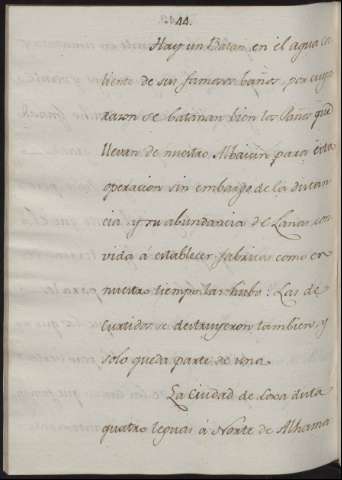 44.
Hay un Batan, en el agua ca
liente de sus famosos baños, por cuya
razon se batanan bien los Paños qué
llevan de nuestro Albaicin para ésta
operacion sin embargo de la distan
cia y su abundancia de Lanas, con
vida á establecer fabricas como en
nuestro tiempo las hubo: Las de
Curtidos se destruyeron tambien, y
solo queda parte de una.
La Ciudad de Loxa dista
quatro leguas á Norte de Alhama